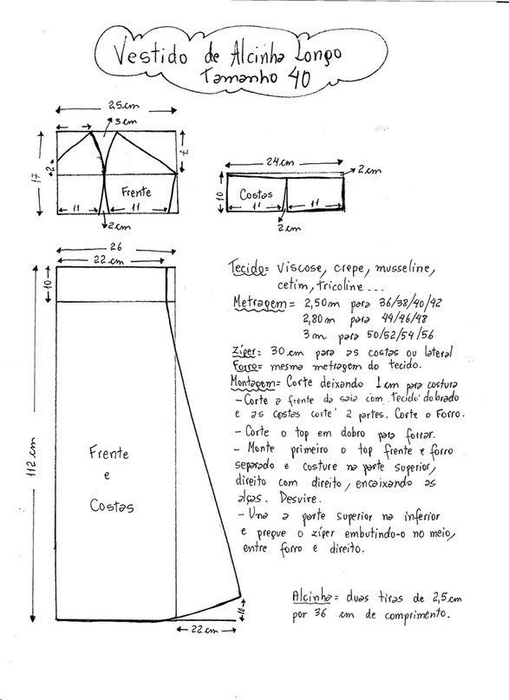 Vestido de Alcinha Longo
Tamanho 40
25cm
3cm
17
2
7
Frente
11
11
2cm
24cm
2cm
10
Costas
11
11
2cm
26
22cm
10
112cm
Frente
e
Costas
22cm
10
Tecido= viscose, crepe, musseline,
cetim, tricoline...
Metragem= 2,50m para 36/38/40/42
2,80m para 44/46/48
3m para 50/52/54/56
Zíper= 30cm para as costas ou lateral
Forro= mesma metragem do tecido.
Montagem= Corte deixando 1cm para costura
- Corte a frente da saia com tecido dobrado
e as costas corte 2 partes. Corte o forro.
- Corte o top em dobro para forrar.
- Monte primeiro o top frente e forro
separado e costure na parte superior,
direito com direito, encaixando as
alças. Desvire.
- Una a parte superior na inferior
e pregue o zíper embutindo-o no meio,
entre forro e direito.
Alcinha= duas tiras de 2,5cm
por 36 cm de comprimento.